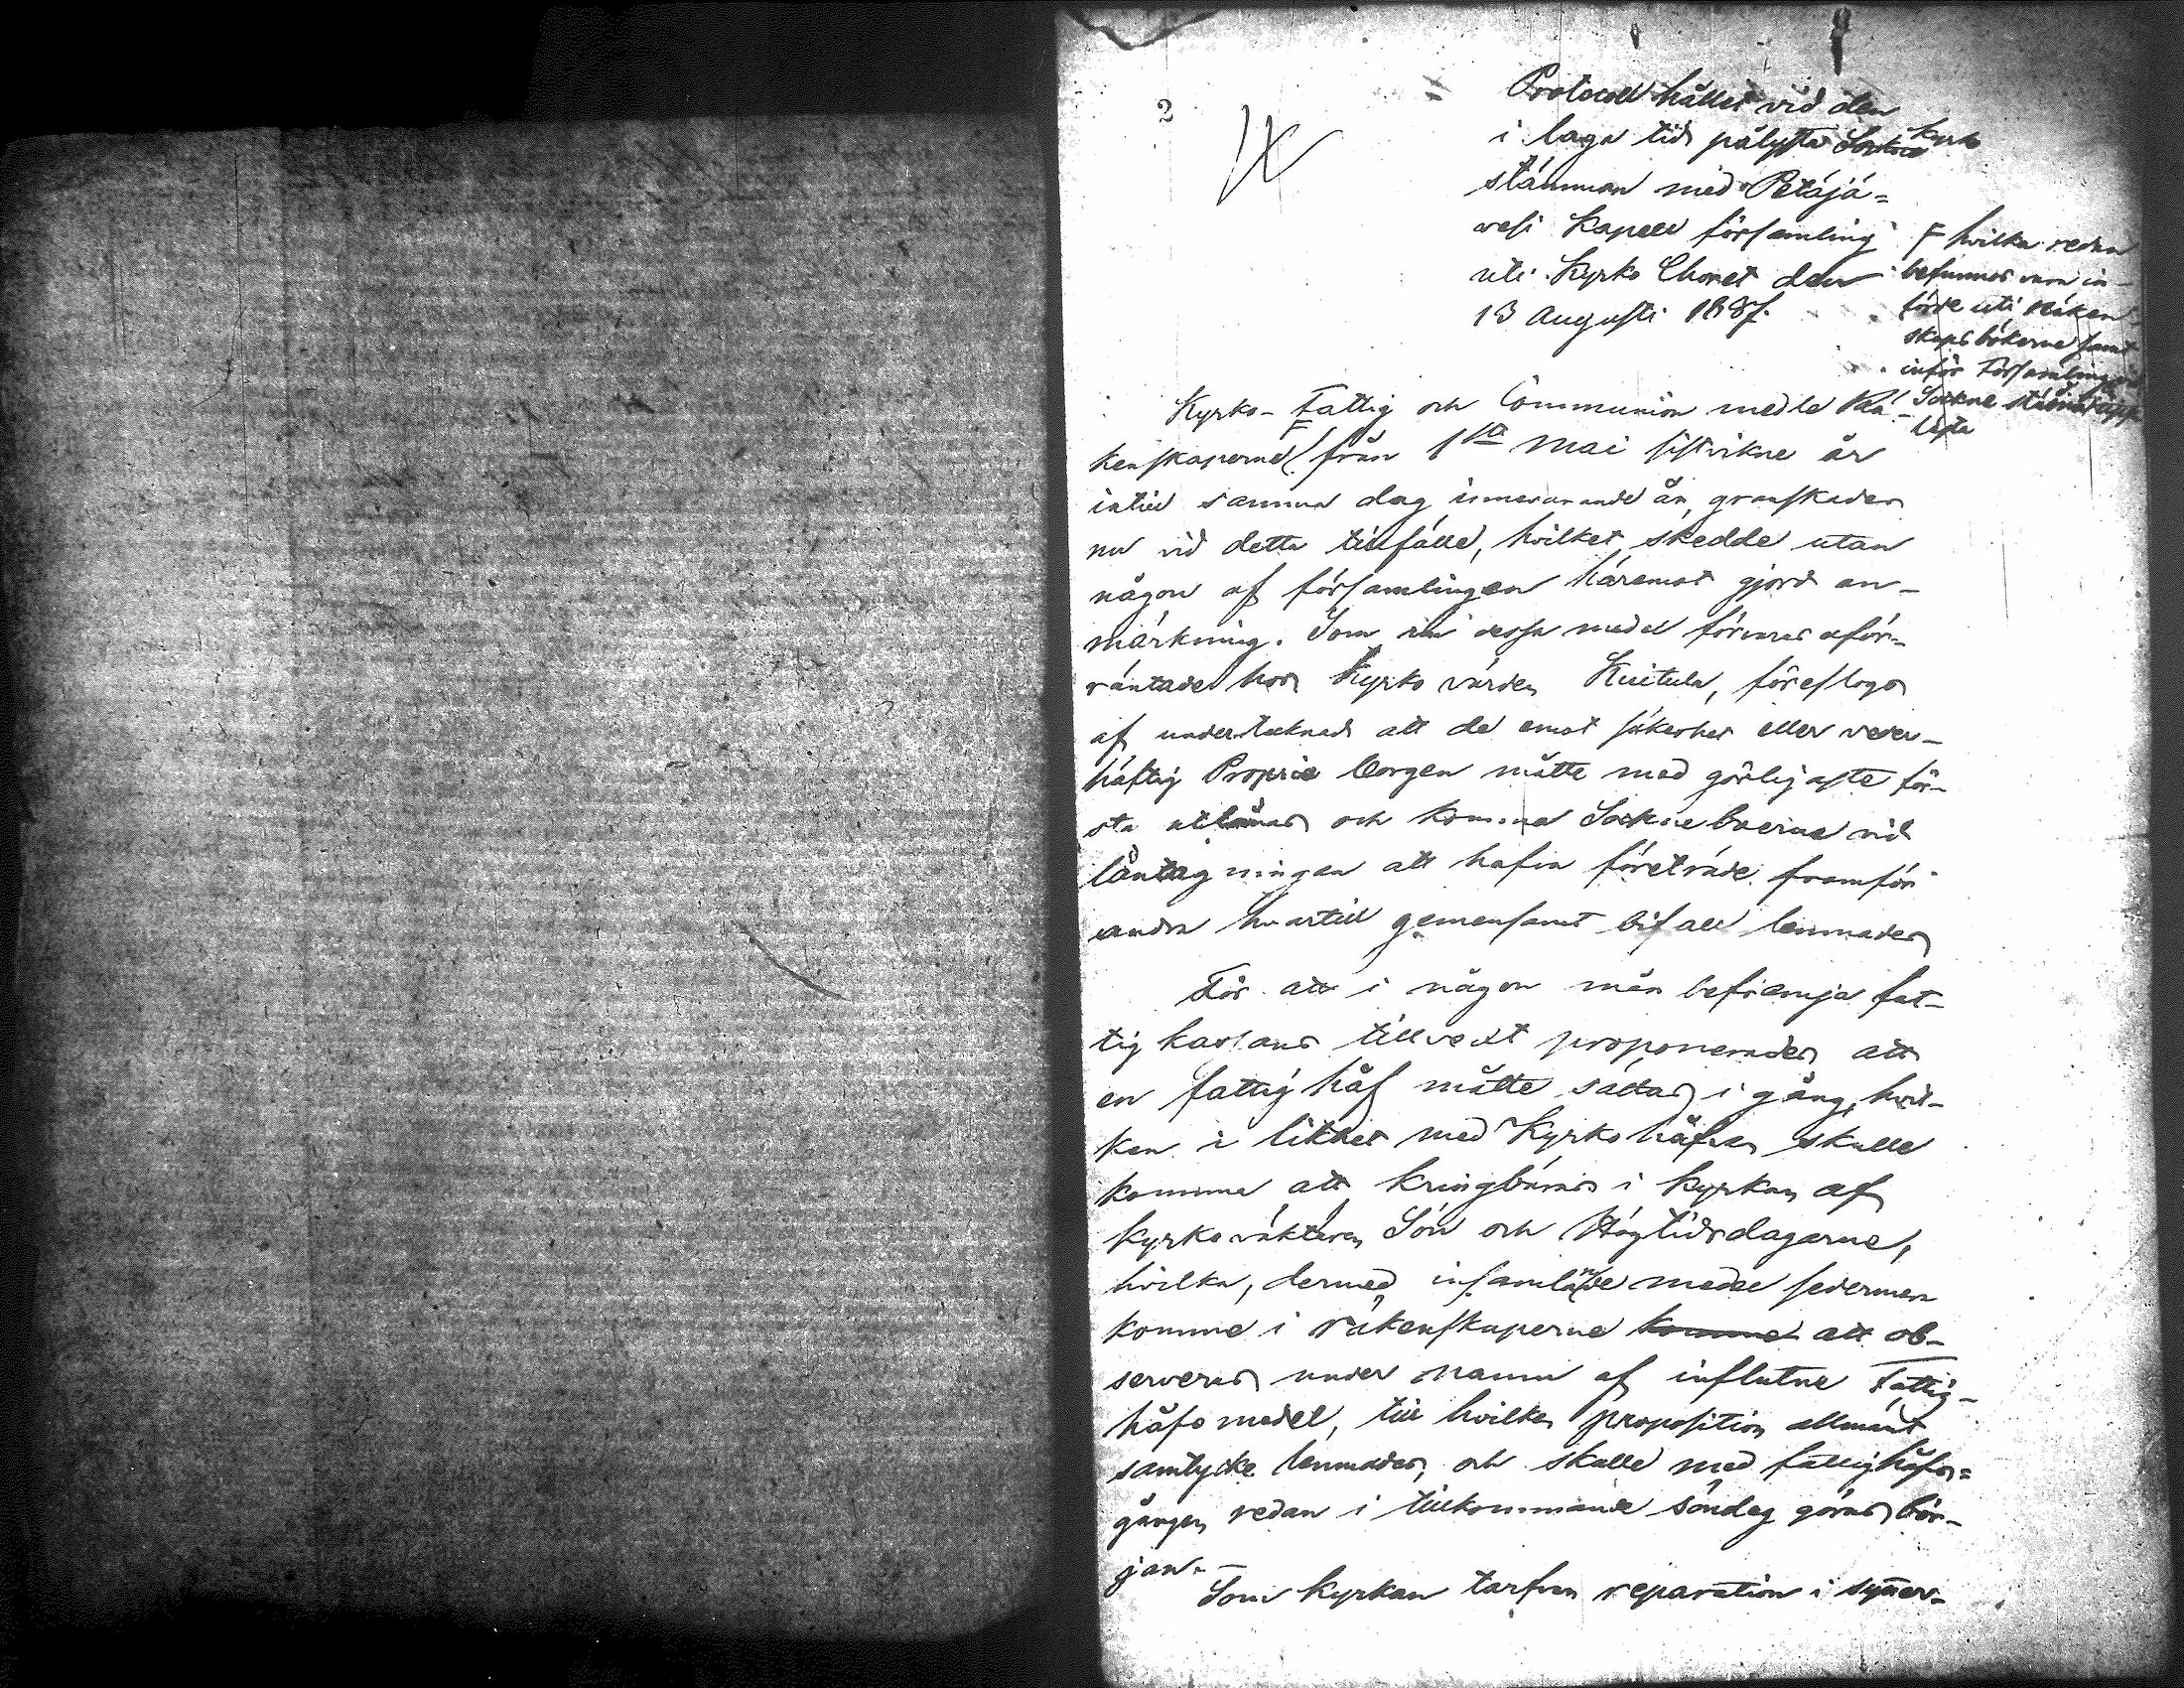 2
Protocoll hållet vid den
i laga tid pålysta Sockne Kyrko
stämman med Petäjä=
vesi Kapell församling
uti Kyrko Choret den
13 Augusti 1837.
F hvilka redan
befunnos vara in-
förde uti räken-
skapsböckerne samt
inför Församlingen
Sockne stämma upp-
läste
Kyrko- Fattig och Communion medle Rä-
kenskaperne F från 1sta Maj sistvikne år
intill samma dag innevarande år, granskades
nu vid detta tillfälle, hvilket skedde utan
någon af församlingen häremot gjord an-
märkning. Som dessa medel förvaras oför-
räntade hos Kyrko värden Kuitula, föreslogs
af undertecknad att de emot säkerhet eller veder-
häftig Proprie borgen måtte med görligaste för-
sta utlånas och komma Sockneboerne vid
låntagningen att hafva företräde framför
andra hvartill gemensamt bifall lemnades
För att i någon mån befrämja fat-
tig kassans tillvext proponerades att
en fattig håf måtte sättas i gång, hvil-
ken i likhet med Kyrko håfven skulle
komma att kringbäras i Kyrkan af
kyrko väktaren Sön och Högtidsdagarne,
hvilka, dermed insamlande medel sedermera
komme i räkenskaperne komme att ob-
serveras under namn af influtne Fattig-
håfs medel, till hvilken proposition allmänt
samtycke lemnades, och skulle med fattighåfs=
gången redan i tillkommande söndag göras bör-
jan.-
Som Kyrkan tarfvar reparation i synner-